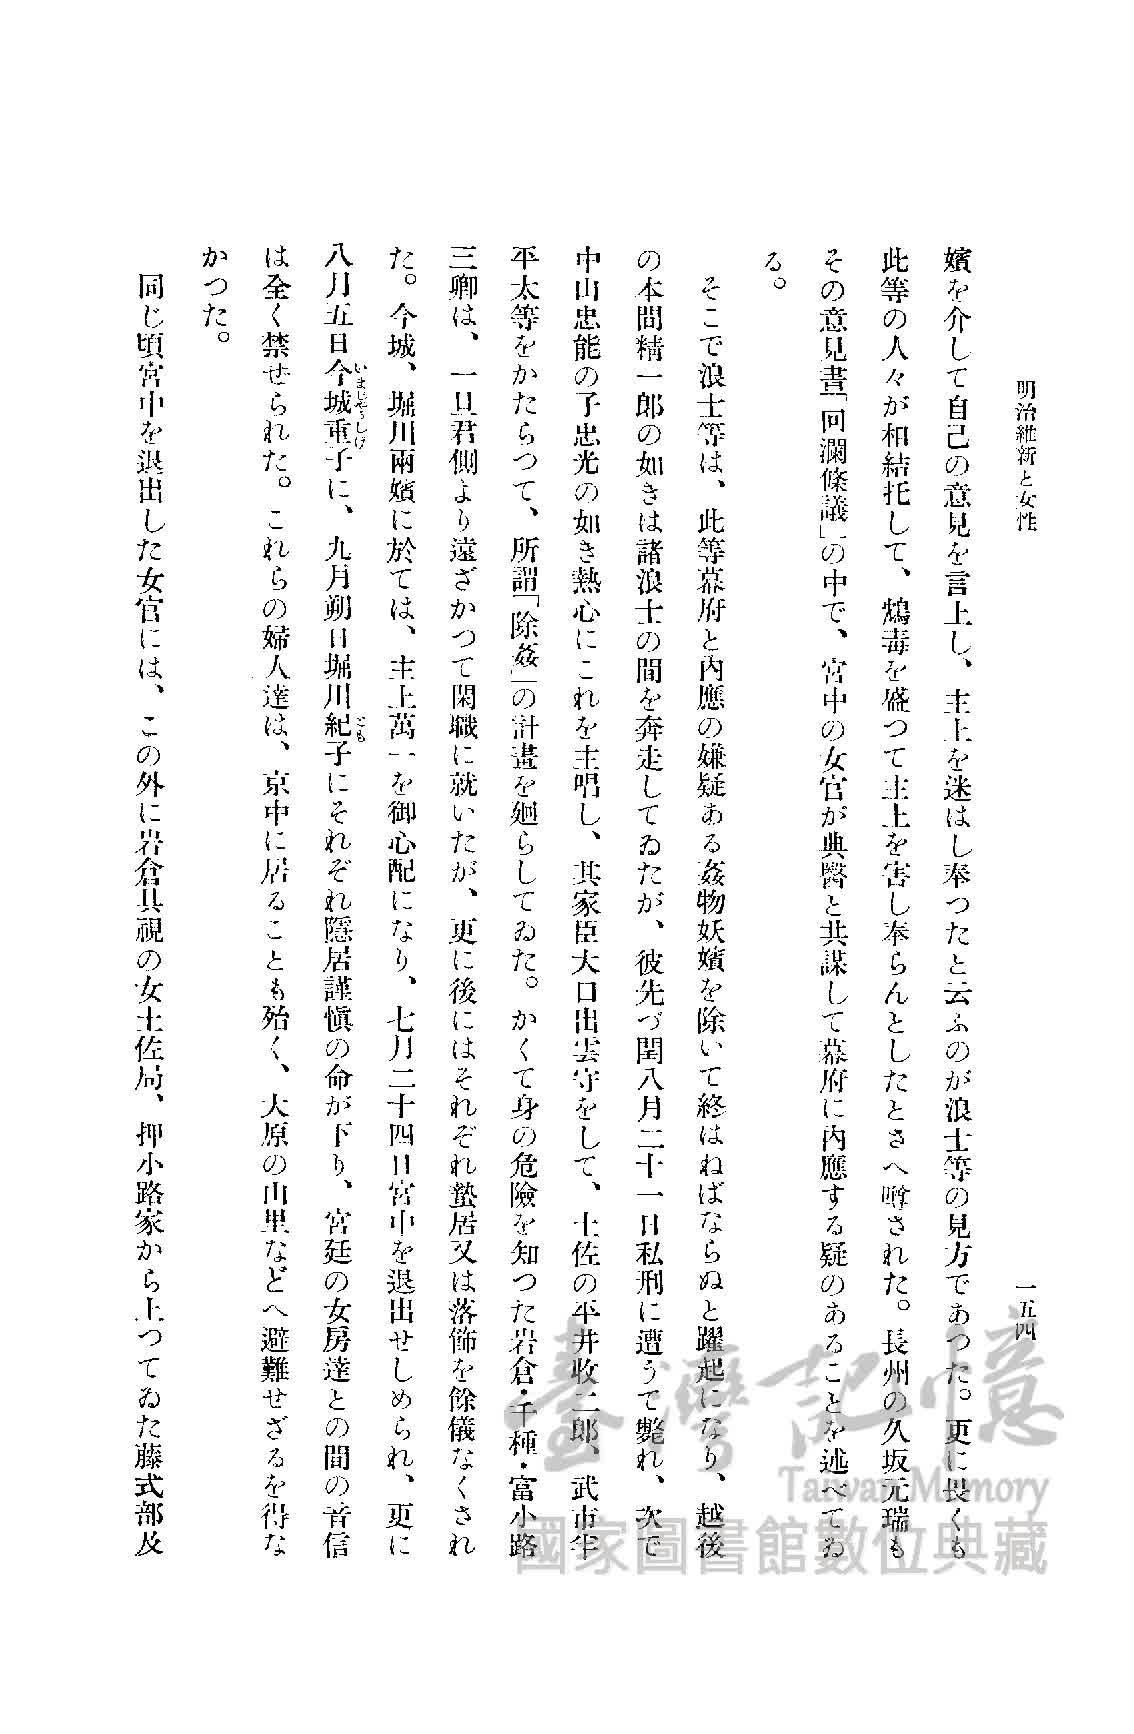 明治維新と女性
一五四
嬪を介して自己の意見を言上し、主上を迷はし奉つたと云ふのが浪士等の見方であつた。更に畏くも
此等の人々が相結托して、鴆毒を盛つて主上を害し奉らんとしたとさへ噂された。長州の久坂元瑞も
その意見書「回瀾條議」の中で、宮中の女官が典醫と共謀して幕府に內應する疑のあることを述べてゐ
る。
そこで浪士等は、此等幕府と內應の嫌疑ある姦物妖嬪を除いて終はねばならぬと躍起になり、越後
の本間精一郎の如きは諸浪士の間を奔走してゐたが、彼先づ閏八月二十一日私刑に遭うて斃れ、次で
中山忠能の子忠光の如き熱心にこれを主唱し、其家臣大口出雲守をして、土佐の平井收二郎、武市半
平太等をかたらつて、所謂「除姦」の計畫を廻らしてゐた。かくて身の危險を知つた岩倉・千種・富小路
三卿は、一旦君側より遠ざかつて閑職に就いたが、更に後にはそれぞれ蟄居又は落飾を餘儀なくされ
た。今城、堀川兩嬪に於ては、主上萬一を御心配になり、七月二十四日宮中を退出せしめられ、更に
八月五日今城重子に、九月朔日堀川紀子にそれぞれ隱居謹愼の命が下り、宮廷の女房達との間の音信
は全く禁せられた。これらの婦人達は、京中に居ることも殆く、大原の山里などへ避難せざるを得な
かつた。
同じ頃宮中を退出した女官には、この外に岩倉具視の女土佐局、押小路家から上つてゐた藤式部及
臺灣記憶
Taiwan Memory
國家圖書館數位典藏